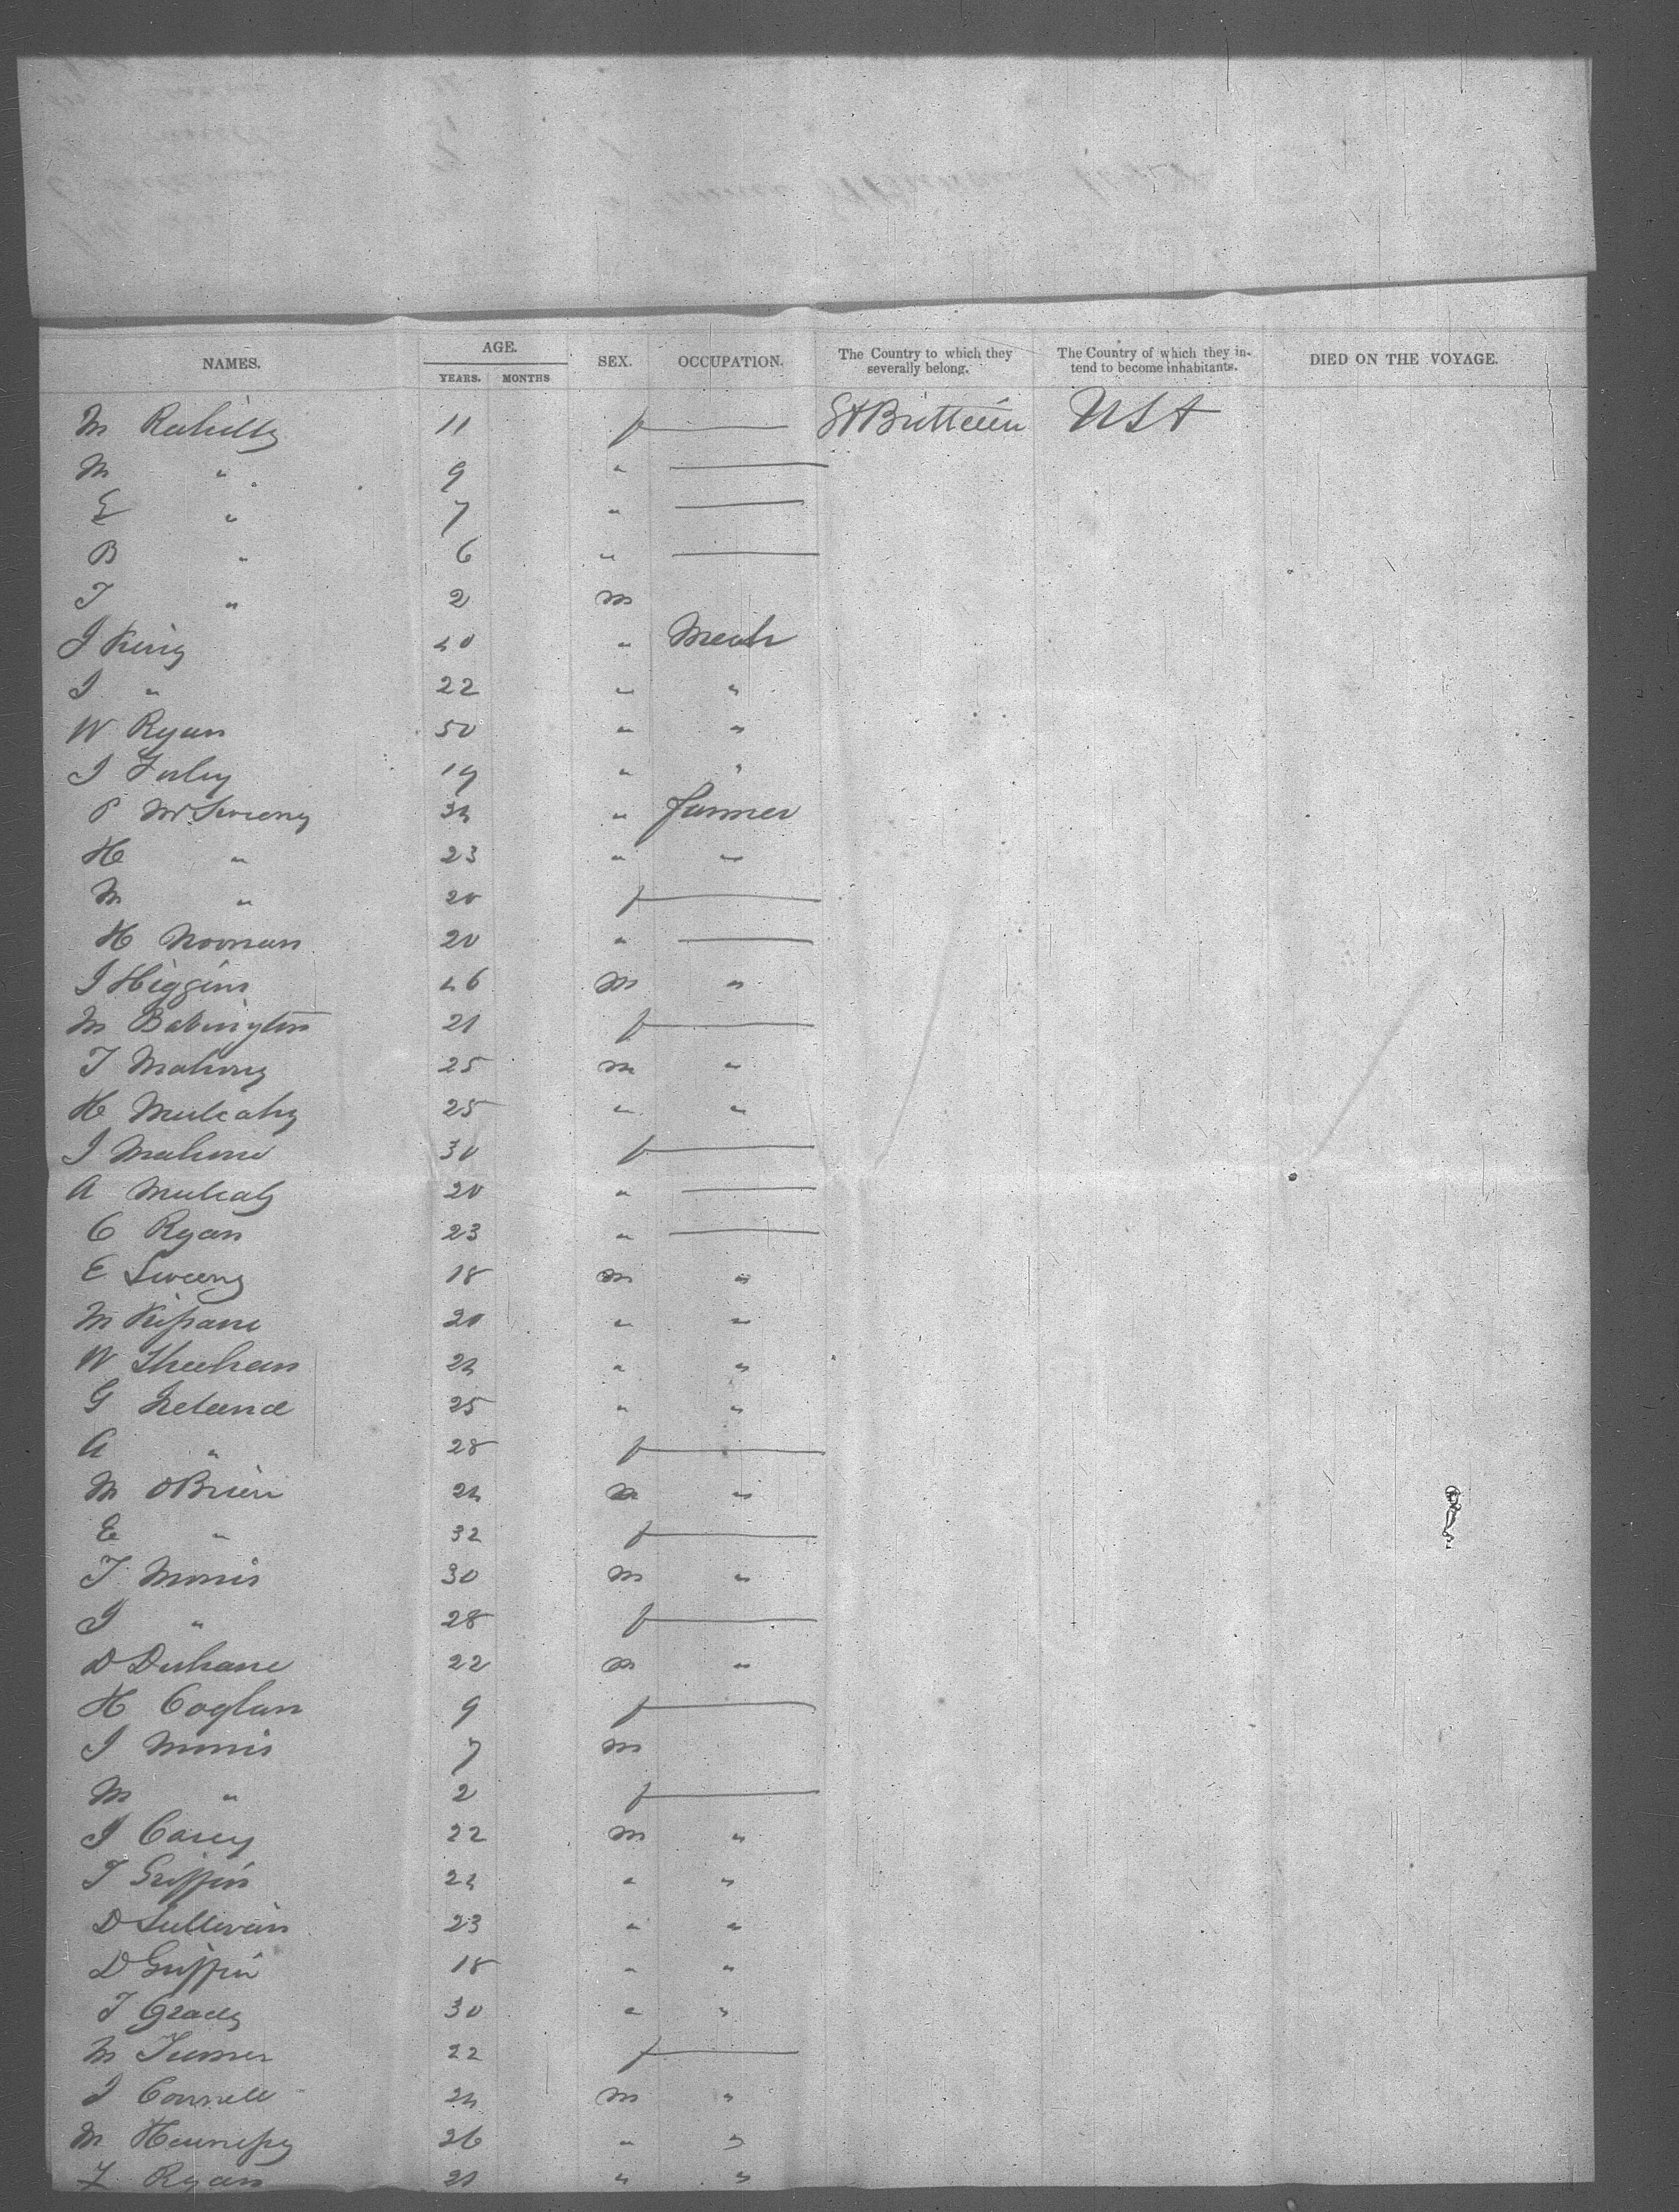 NAMES. AGE. SEX. OCCUPATION. The Country to which they severally belong. The Country of which they intend to become inhabitants. DIED ON THE VOYAGE.
YEARS. MONTHS
M Rahilly 11 f — Gt Brittain USA
M " 9 " —
E " 7 " —
B " 6 " —
T " 2 m
J King 40 " Mech
J " 22 " "
W Ryan 50 " "
J Foley 19 " "
P McSweeny 34 " farmer
H " 23 " "
M " 20 f —
H Noonan 20 " —
J Higgins 46 m "
M Babington 21 f —
T Mahony 25 m "
H Mulcahy 25 " "
J Mahone 30 f —
A Mulcahy 20 " —
C Ryan 23 " —
E Sweeny 18 m "
M Kissane 20 " "
W Sheehan 24 " "
G Ireland 25 " "
A " 28 f —
M OBrien 24 m "
E " 32 f —
T Morris 30 m "
J " 28 f —
D Duhane 22 m "
H Coglan 9 f —
J Morris 7 m
M " 2 f —
J Casey 22 m "
T Griffin 24 " "
D Sullivan 23 " "
D Griffin 18 " "
T Grady 30 " "
M Turner 22 f —
J Connell 24 m "
M Hennessy 26 " "
Ryan " "